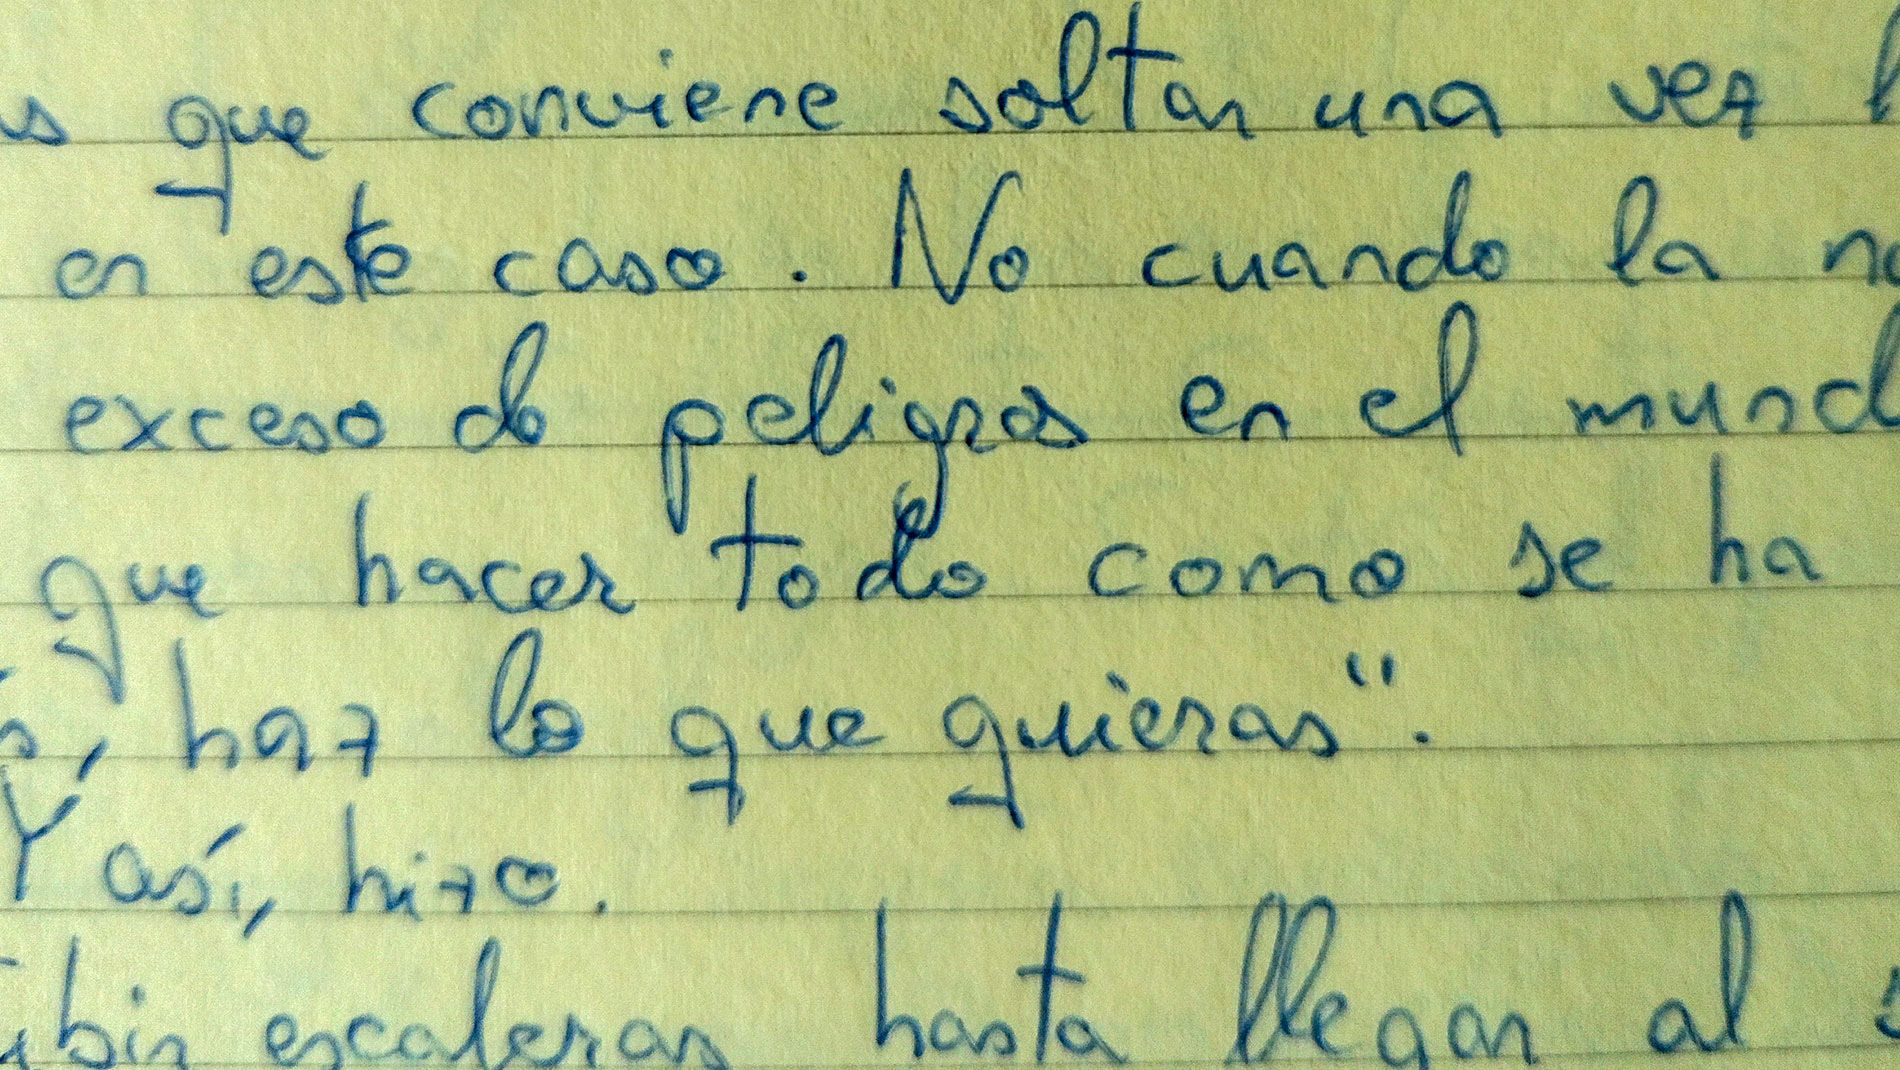 que conviene soltar una vez
en este caso. No cuando la
exceso de peligros en el mund
que hacer todo como se ha
, haz lo que quieras".
Y así, hizo.
escaleras hasta llegar al